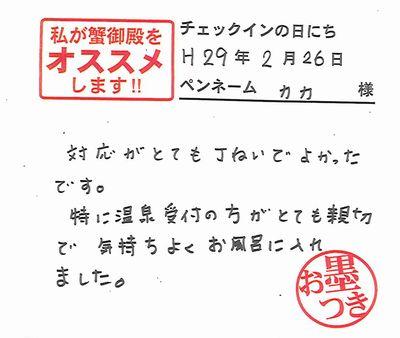 私が蟹御殿を
オススメ
します!!
チェックインの日にち
H29年2月26日
ペンネーム カカ 様
対応がとても丁ねいでよかった
です。
特に温泉受付の方がとても親切
で 気持ちよく お風呂に入れ
ました。
お墨つき